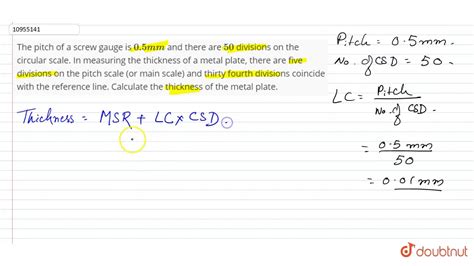 10955141
The pitch of a screw gauge is 0.5mm and there are 50 divisions on the
circular scale. In measuring the thickness of a metal plate, there are five
divisions on the pitch scale (or main scale) and thirty fourth divisions coincide
with the reference line. Calculate the thickness of the metal plate.
Thickness = MSR + LC × CSD.
Pitch = 0.5mm.
No. of CSD = 50.
LC = Pitch / No. of CSD.
= 0.5 mm / 50
= 0.01 mm
doubtnut